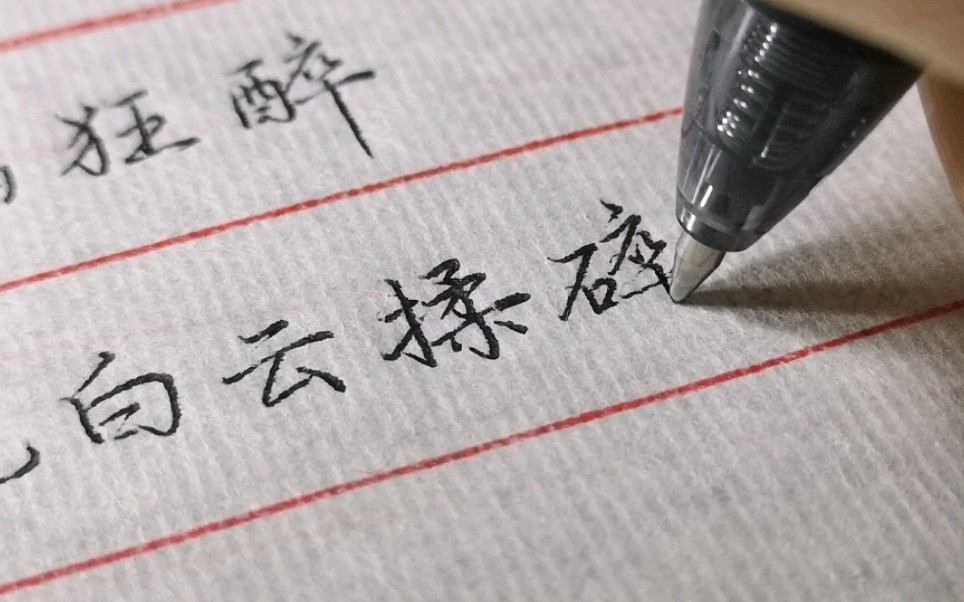 狂醉
白云揉碎